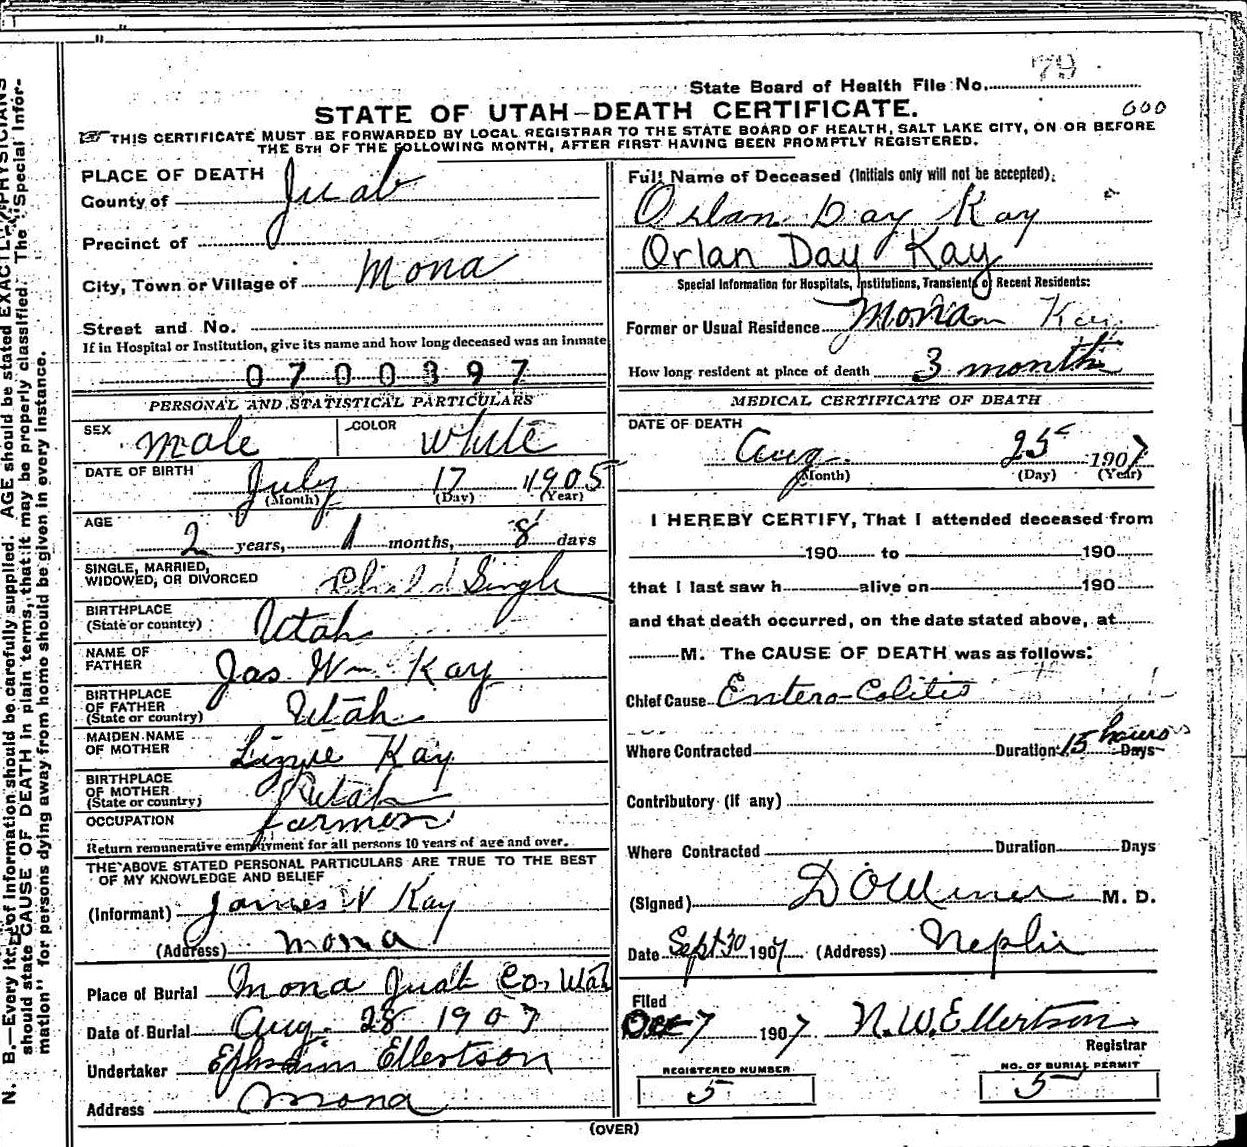 State Board of Health File No. 79
000
STATE OF UTAH—DEATH CERTIFICATE.
THIS CERTIFICATE MUST BE FORWARDED BY LOCAL REGISTRAR TO THE STATE BOARD OF HEALTH, SALT LAKE CITY, ON OR BEFORE
THE 5TH OF THE FOLLOWING MONTH, AFTER FIRST HAVING BEEN PROMPTLY REGISTERED.
PLACE OF DEATH
County of Juab
Precinct of
City, Town or Village of Mona
Street and No.
If in Hospital or Institution, give its name and how long deceased was an inmate
0700397
PERSONAL AND STATISTICAL PARTICULARS
SEX Male COLOR White
DATE OF BIRTH July 17 1905
(Month) (Day) (Year)
AGE
2 years, 1 months, 8 days
SINGLE, MARRIED,
WIDOWED, OR DIVORCED Child Single
BIRTHPLACE
(State or country) Utah
NAME OF
FATHER Jas Wm Kay
BIRTHPLACE
OF FATHER
(State or country) Utah
MAIDEN NAME
OF MOTHER Lizzie Kay
BIRTHPLACE
OF MOTHER
(State or country) Utah
OCCUPATION farmer
Return remunerative employment for all persons 10 years of age and over.
THE ABOVE STATED PERSONAL PARTICULARS ARE TRUE TO THE BEST
OF MY KNOWLEDGE AND BELIEF
(Informant) James W Kay
(Address) Mona
Place of Burial Mona Juab Co, Utah
Date of Burial Aug. 28 1907
Undertaker Ephraim Ellertson
Address Mona
Full Name of Deceased (Initials only will not be accepted).
Orlan Day Kay
Orlan Day Kay
Special Information for Hospitals, Institutions, Transients or Recent Residents:
Former or Usual Residence Mona Kay
How long resident at place of death 3 months
MEDICAL CERTIFICATE OF DEATH
DATE OF DEATH
Aug. 25 1907
(Month) (Day) (Year)
I HEREBY CERTIFY, That I attended deceased from
190 to 190
that I last saw h alive on 190
and that death occurred, on the date stated above, at
M. The CAUSE OF DEATH was as follows:
Chief Cause Entero-Colitis
Where Contracted Duration 15 hours Days
Contributory (if any)
Where Contracted Duration Days
(Signed) M. D.
Date Sept 30 1907 (Address) Nephi
Filed
Oct 7 1907 N. W. Ellertson
Registrar
REGISTERED NUMBER
5
NO. OF BURIAL PERMIT
5
(OVER)
N. B.—Every item of information should be carefully supplied. AGE should be stated EXACTLY. PHYSICIANS
should state CAUSE OF DEATH in plain terms, that it may be properly classified. The "Special Infor-
mation" for persons dying away from home should be given in every instance.